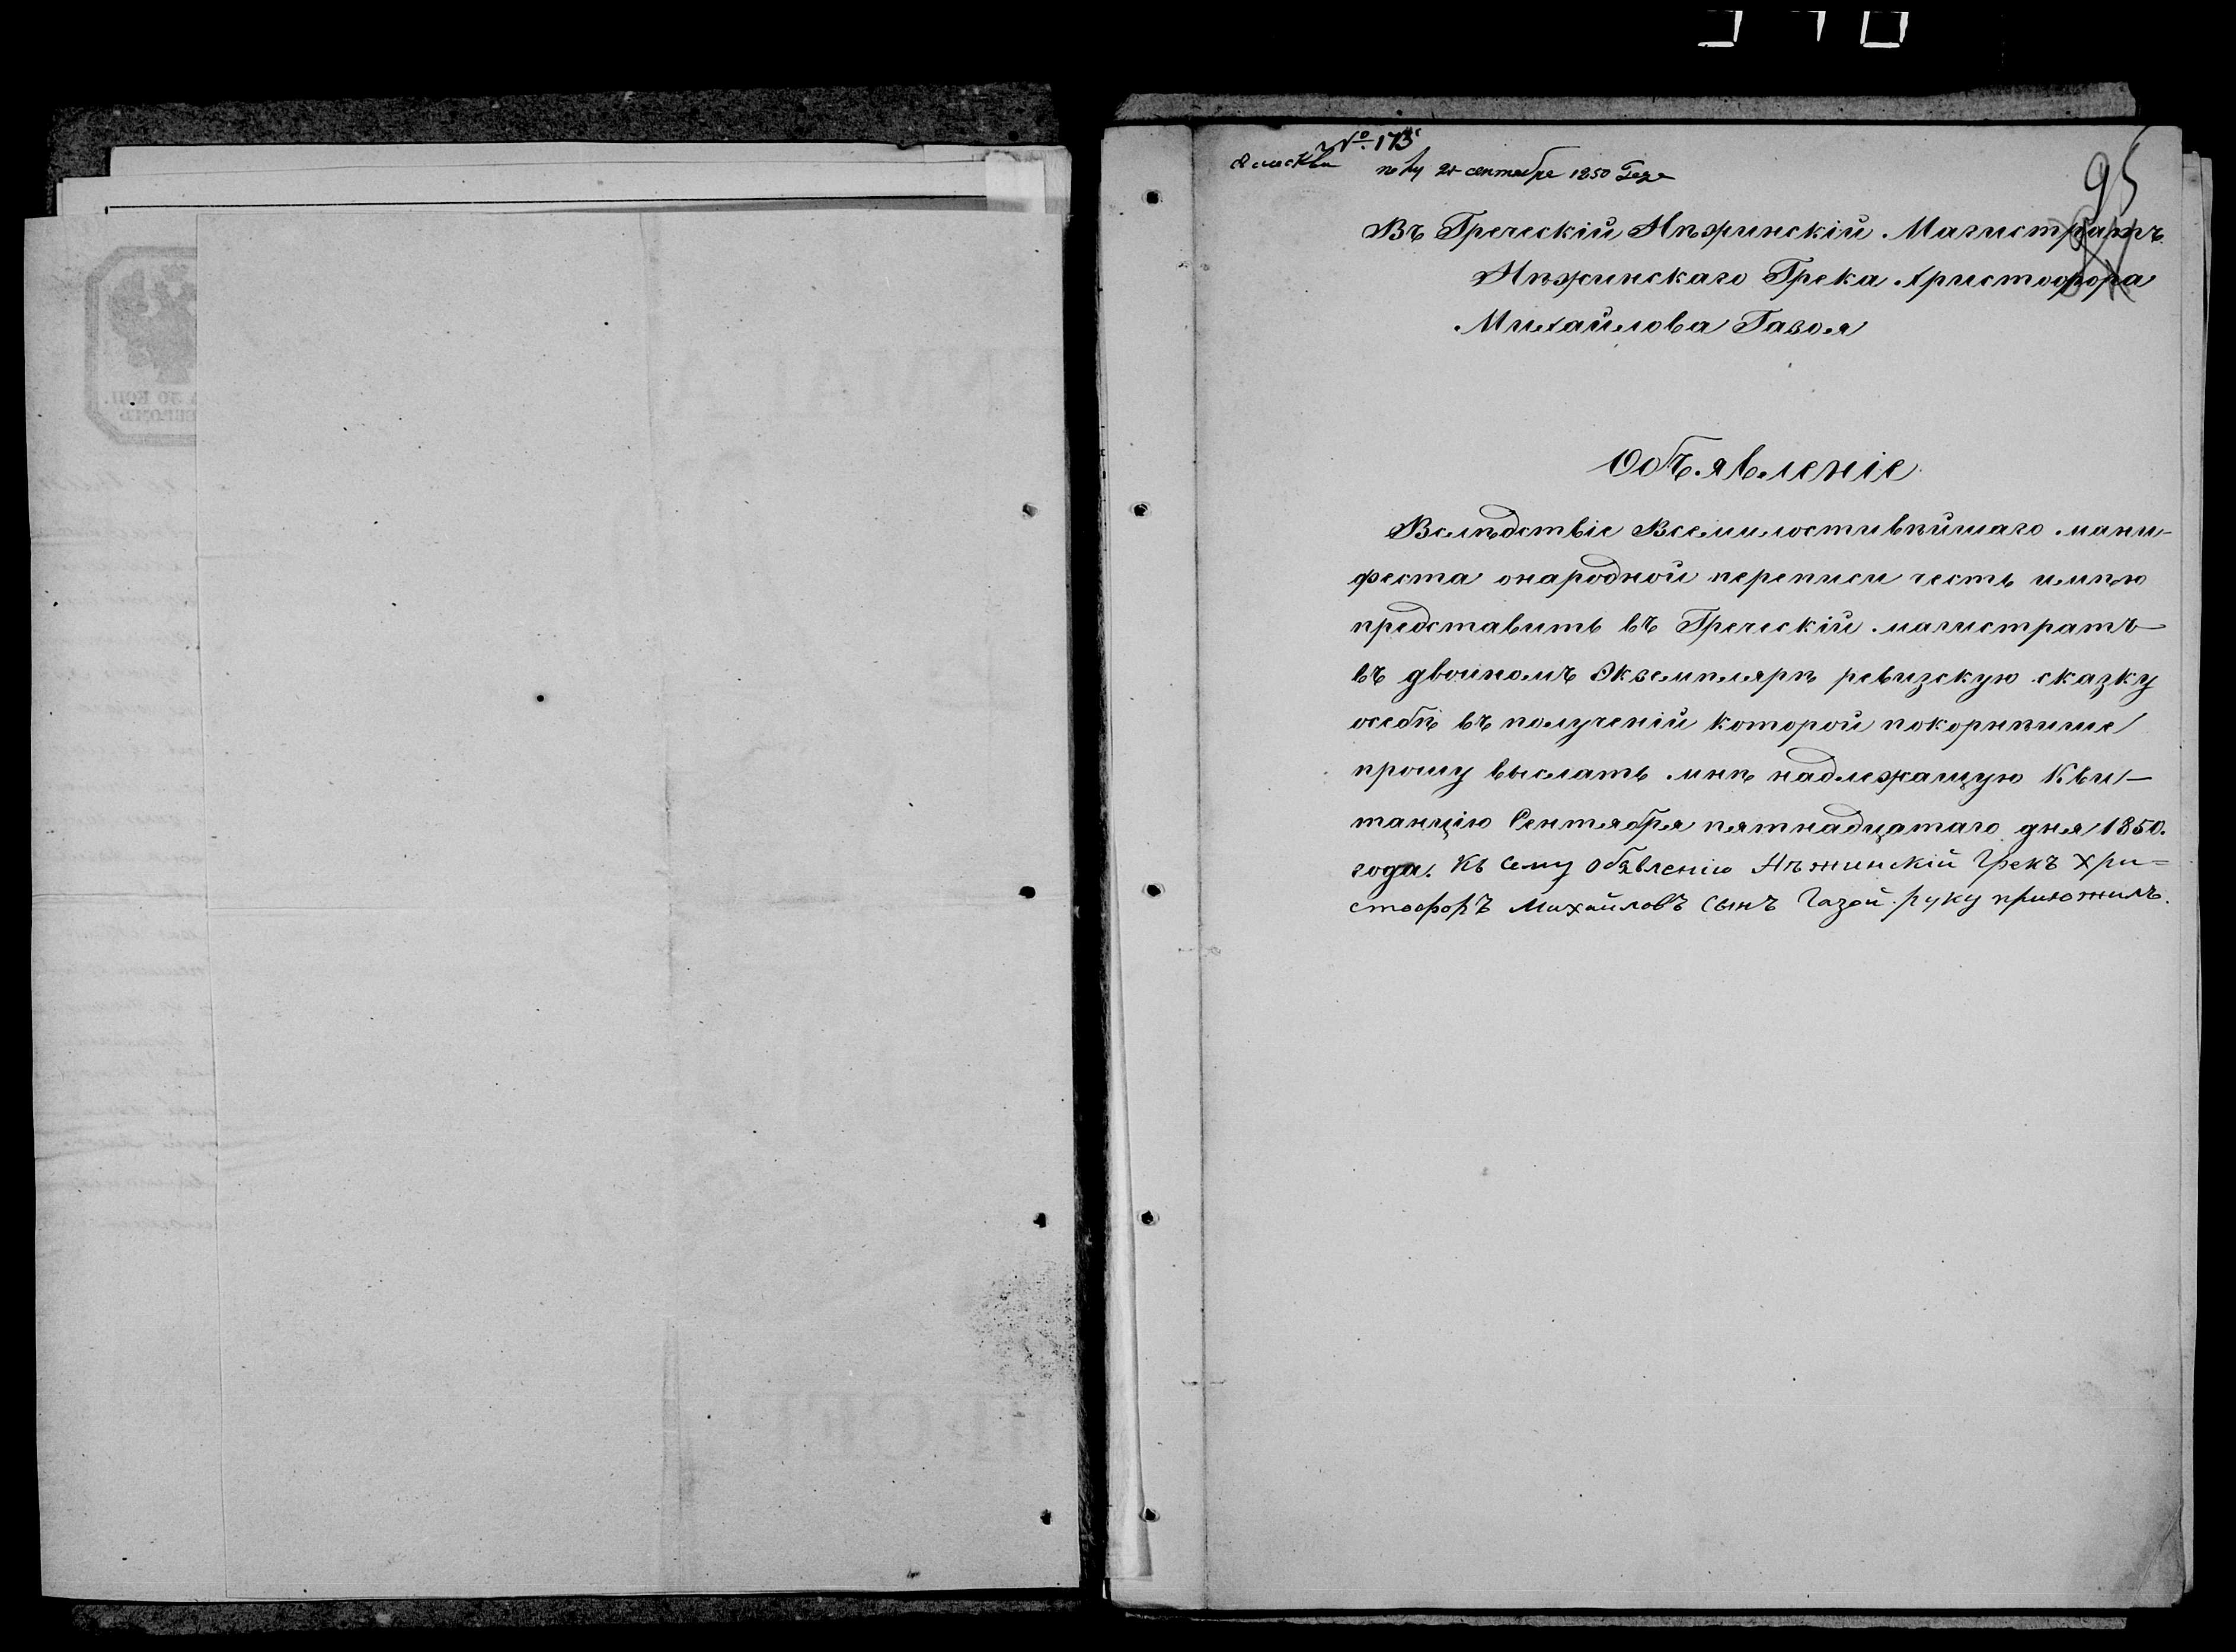 № 173
21 сентября 1850 года
95
Въ Греческій Нѣжинскій Магистратъ
Нѣжинскаго Грека Христофора
Михайлова Газоя
Объявленіе
Вслѣдствіе Всемилостивѣйшаго мани-
феста онародной переписи честь имѣю
представить въ Греческій магистратъ
въ двойномъ Экземплярѣ ревизскую сказку
осебѣ въ полученій которой покорнѣише
прошу выслать мнѣ надлежащую Кви-
танцію Сентября пятнадцатаго дня 1850.
года. Къ сему объявленію Нѣжинскій Грекъ Хри=
стофоръ Михайловъ сынъ Газой руку приложилъ.